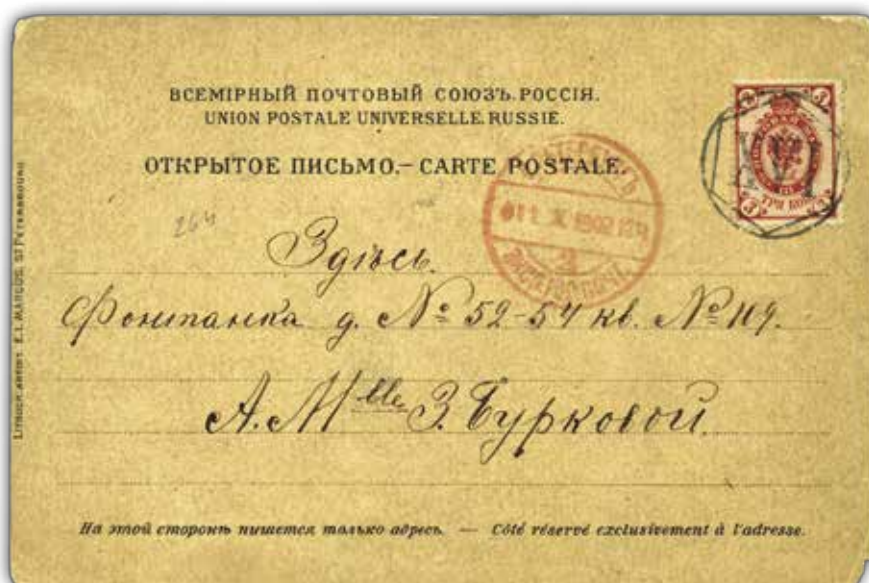 ВСЕМІРНЫЙ ПОЧТОВЫЙ СОЮЗЪ. РОССІЯ.
UNION POSTALE UNIVERSELLE. RUSSIE.
ОТКРЫТОЕ ПИСЬМО. — CARTE POSTALE.
264
Здѣсь.
Фонтанка д. № 52-54 кв. № 114.
A. Mlle З. Бурковой.
На этой сторонѣ пишется только адресъ. — Côté réservé exclusivement à l'adresse.
E. I. MARCUS, ST PETERSBOURG
3 3
ТРИ КОП
3 3
1902
2